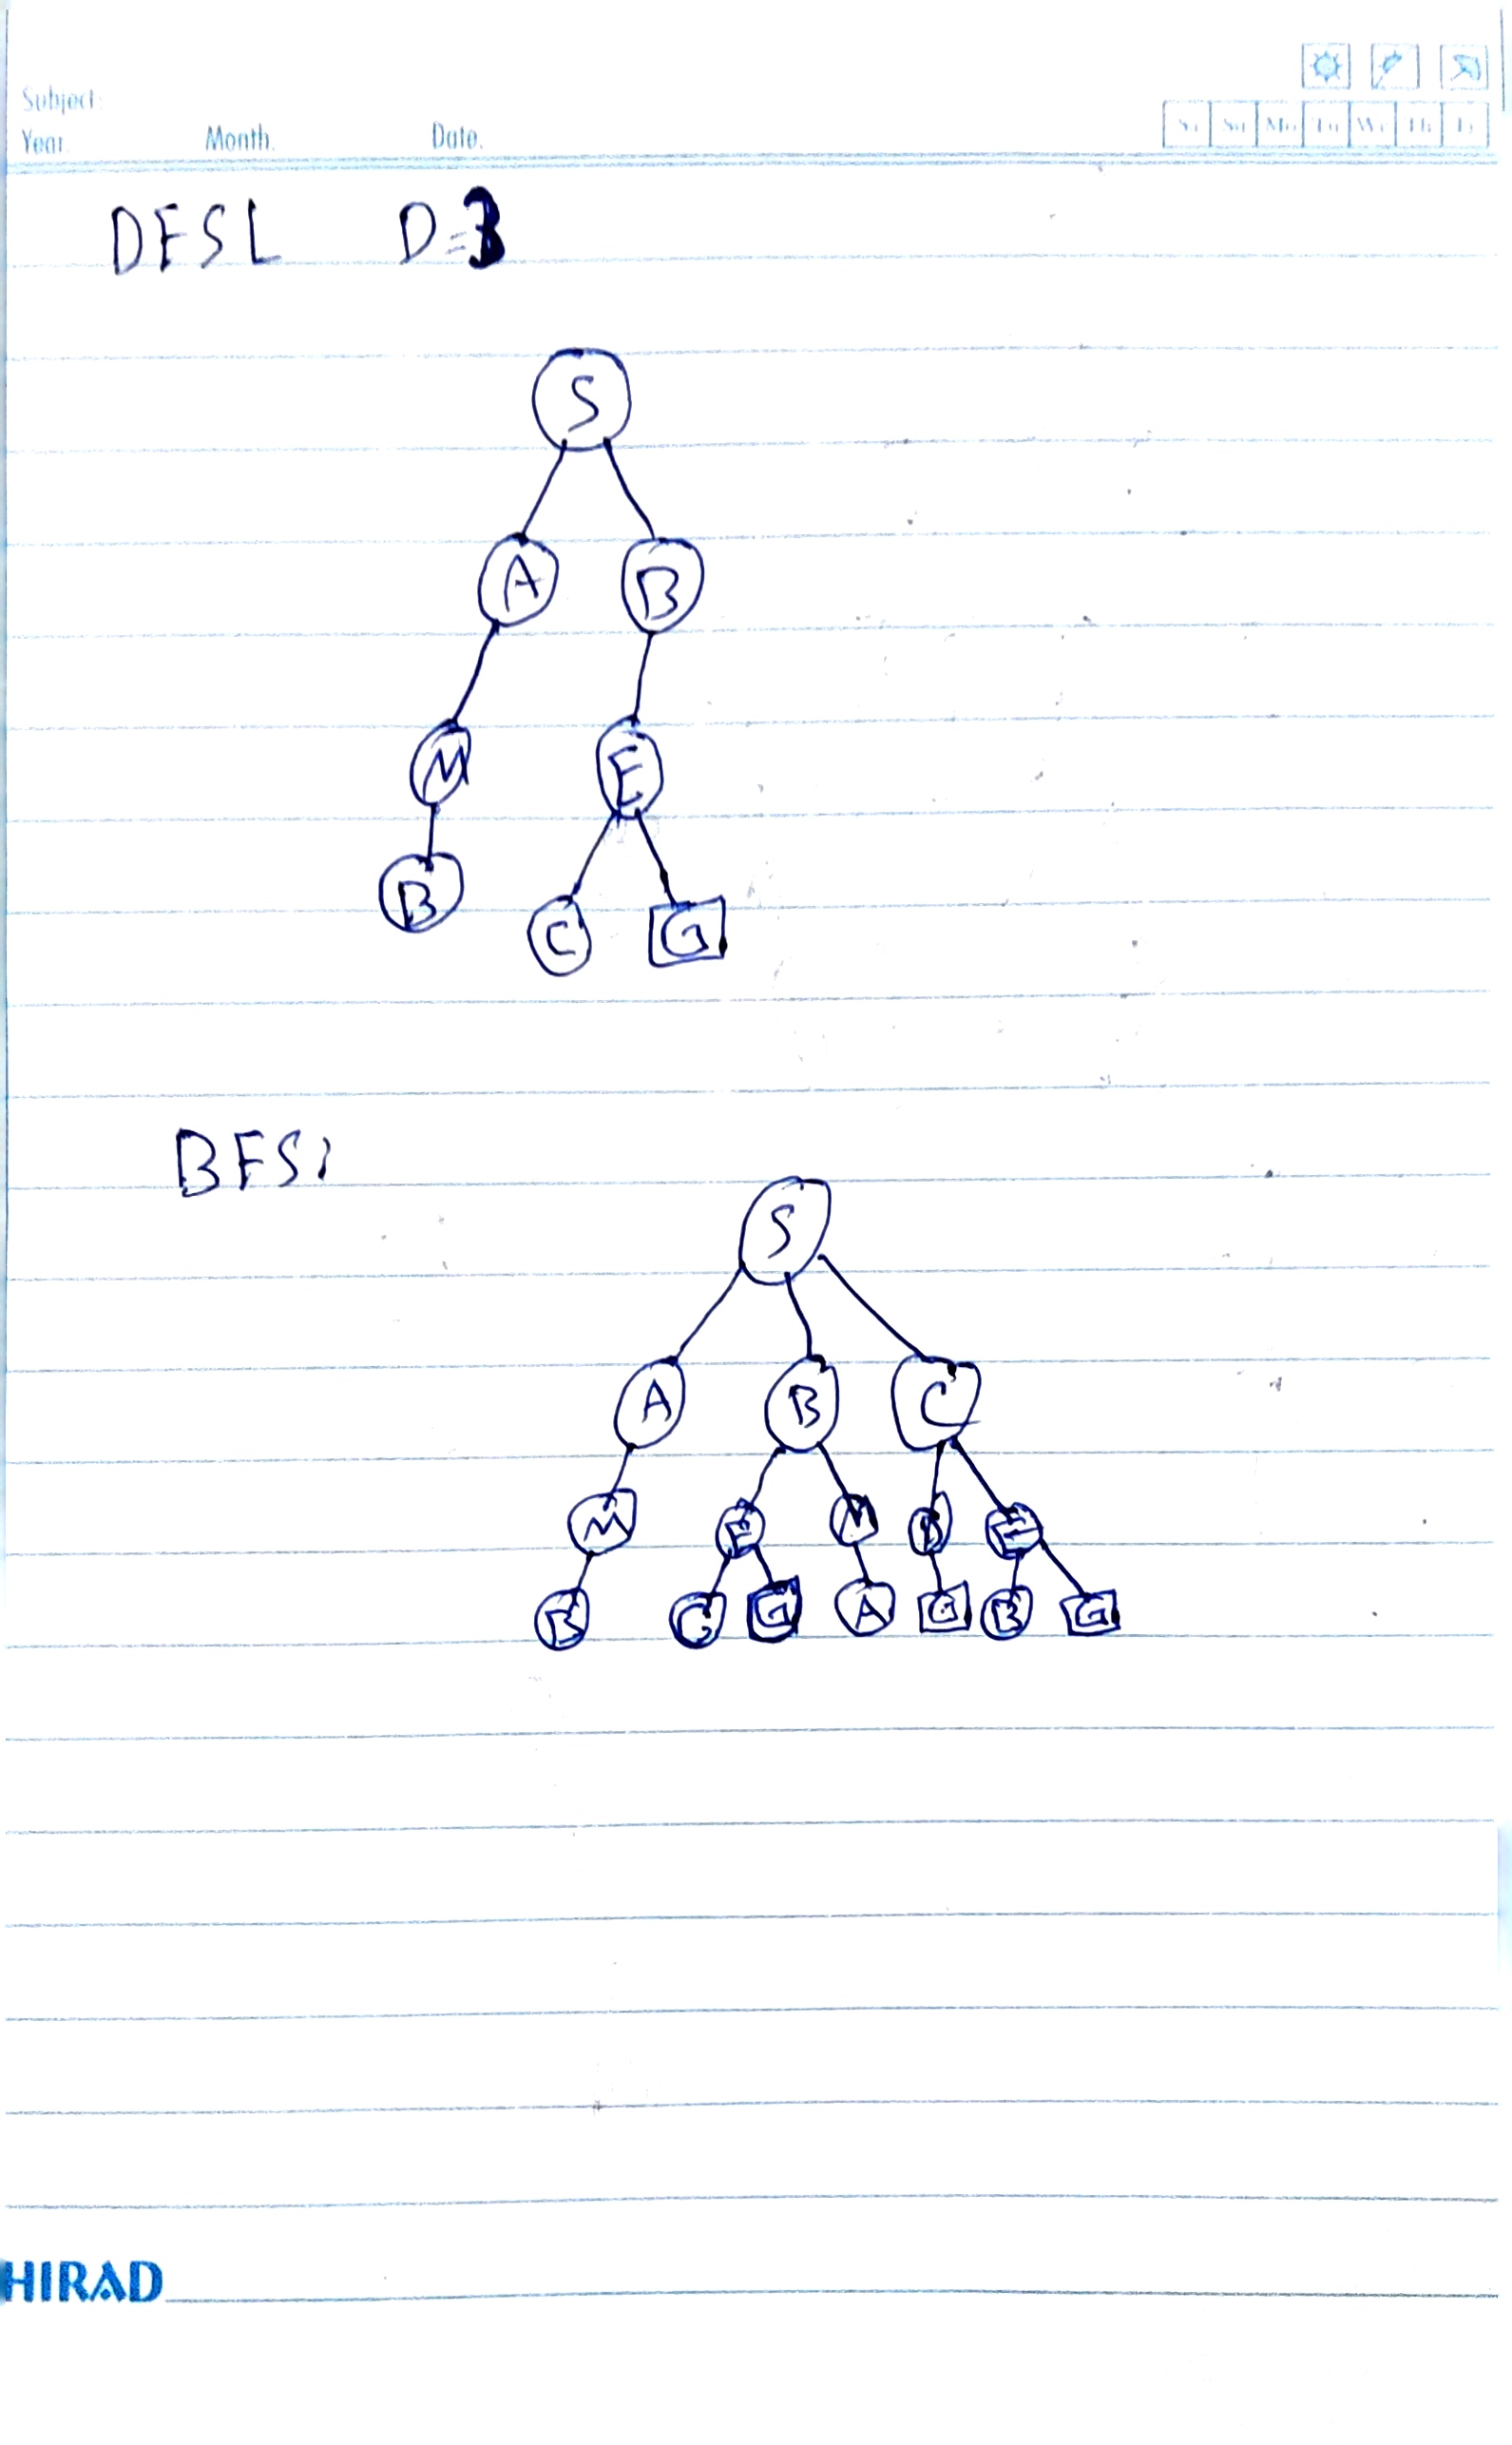 Subject:
Year. Month. Date.
Sa Su Mo Tu We Th Fr
DFSL D=3
S
A B
M E
B C G
BFS:
S
A B C
M E M D E
B C G A G B G
HIRAD